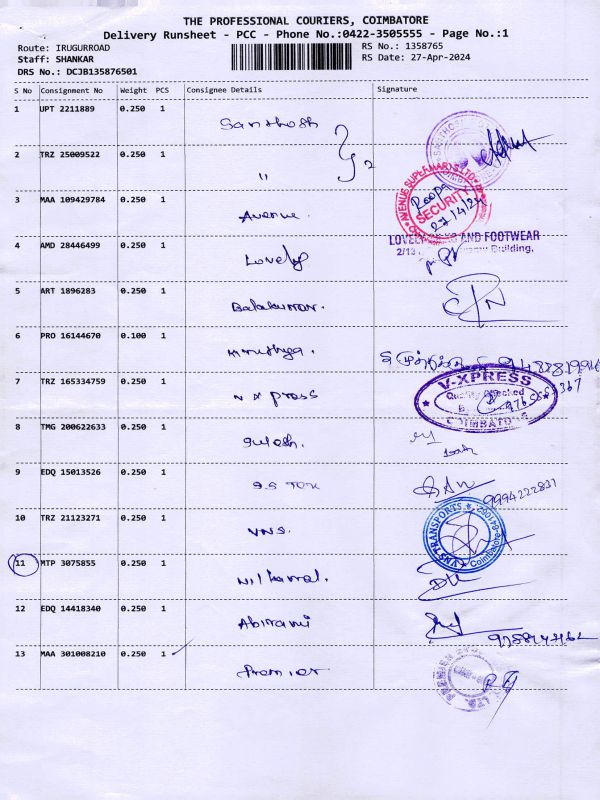 THE PROFESSIONAL COURIERS, COIMBATORE
Delivery Runsheet - PCC - Phone No.:0422-3505555 - Page No.:1
Route: IRUGURROAD
Staff: SHANKAR
DRS No.: DCJB135876501
RS No.: 1358765
RS Date: 27-Apr-2024
S No Consignment No Weight PCS Consignee Details Signature
1 UPT 2211889 0.250 1 Santhosh
2 TRZ 25009522 0.250 1 " 2
3 MAA 109429784 0.250 1 Avenue. AVENUE SUPERMARTS LTD SECURITY Roopa 27/4/24
4 AMD 28446499 0.250 1 Lovely LOVELY AND FOOTWEAR
2/13 Building,
5 ART 1896283 0.250 1 Balakumar.
6 PRO 16144670 0.100 1
7 TRZ 165334759 0.250 1 V X Press V-XPRESS Quality Checked COIMBATORE
8 TMG 200622633 0.250 1
9 EDQ 15013526 0.250 1 9994222831
10 TRZ 21123271 0.250 1 VNS. VNS TRANSPORTS Coimbatore-641062
11 MTP 3075855 0.250 1 Nilkamal.
12 EDQ 14418340 0.250 1 Abirami
13 MAA 301008210 0.250 1 Premier PREMIER